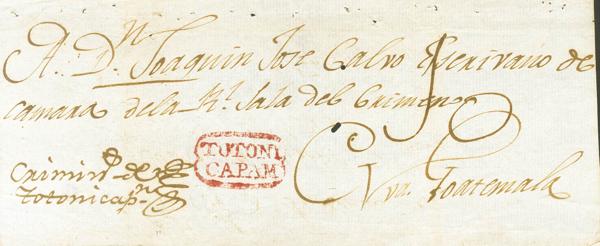 A Dn. Joaquin Jose Calvo Escrivano de
camara dela Rl. Sala del Crimen
TOTONI
CAPAM
Nva. Goatemala
Crimin
Totonicapn.